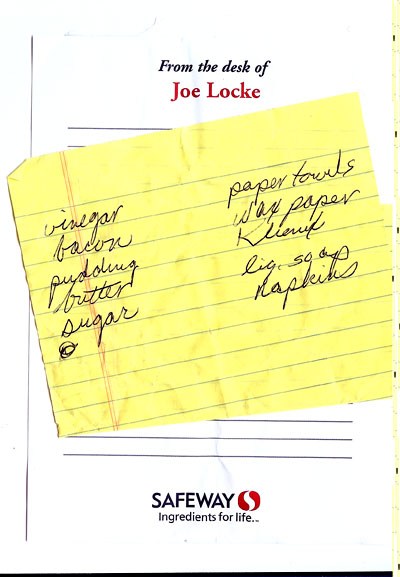 From the desk of
Joe Locke
vinegar
bacon
pudding
butter
sugar
paper towels
wax paper
Klienex
liq. soap
napkins
SAFEWAY
Ingredients for life.™